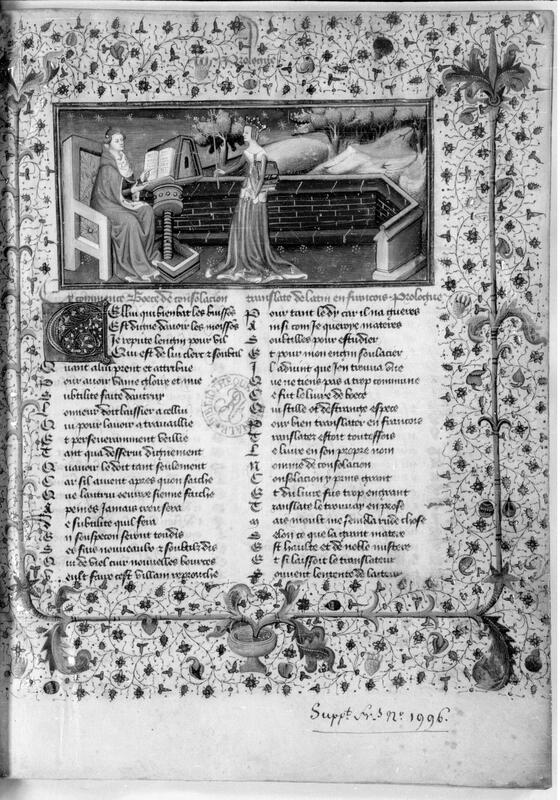 Prologue
Cy commence Boece de consolacion translate de latin en francois Prologue
Cellui qui bien bat les buissons
Est digne davoir les moissons
Je repute lengin pour vil
Qui est de lui clerc et soubtil
Quant alui prent et attribue
Pour avoir vaine gloire et nue
Subtilite faite dautrui
honneur doit laissier a cellui
Qui pour lavoir a travaillie
Et perseveramment veillie
Tant qua desservi dignement
Quavoir le doit tant seulement
Car sil avient apres quon sache
Que lautrui oeuvre sienne sache
A peines jamais creu sera
De subtilite quil fera
En souspecon seront toudis
Ses fais nouveaulx et soubtilz dis
Qui de viel cuir nouvelles bources
Veult faire cest villain reprouche
Pour tant le dy car il na gueres
Ainsi com je queroye materes
Soubtilles pour estudier
Et pour mon engin soulacier
Il advint que jen trouvay une
Que ne tiens pas a trop commune
Ce fut le livre de boece
Qui stille ot destrange espece
Pour bien translater en francois
Translater estoit toutesfois
Le livre en son propre nom
Nomme de consolacion
Consolacion y prins grant
Et du livre fus trop engrant
Translate le trouvay en prose
Mais moult me sembla rude chose
Selon ce que la grant matere
Est haulte et de noble mistere
Et si laissoit le translateur
Souvent lentente de lacteur
Suppt. fr.s No. 1996.